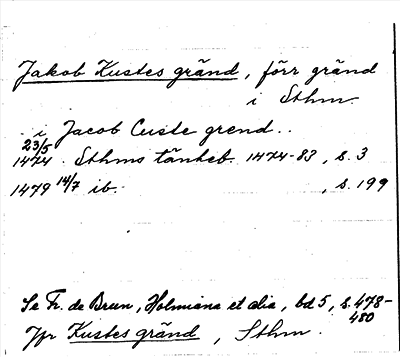 Jakob Kustes gränd, förr gränd
i Sthm.
.. i Jacob Custe grend..
1474 23/5 . Sthms tänkeb. 1474-83, s. 3
1479 14/7 ib. , s. 199
Se Fr. de Brun, Holmiana et alia, bd 5, s. 478-
480
Jfr Kustes gränd, Sthm.